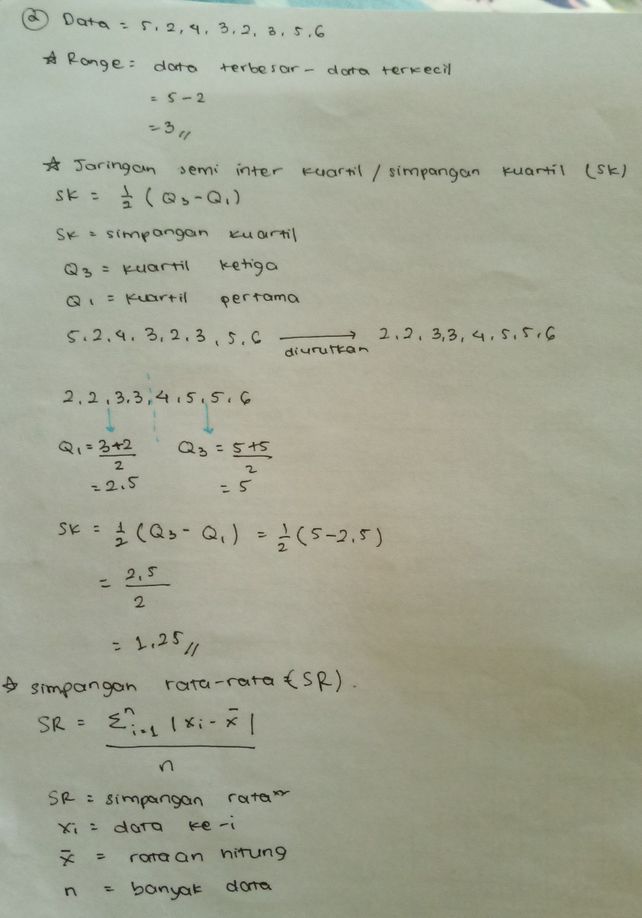 ② Data = 5, 2, 4, 3, 2, 3, 5, 6
☆ Range = data terbesar - data terkecil
= 5 - 2
= 3 //
☆ Jaringan semi inter kuartil / simpangan kuartil (SK)
SK = 1/2 (Q3 - Q1)
SK = simpangan kuartil
Q3 = kuartil ketiga
Q1 = kuartil pertama
5, 2, 4, 3, 2, 3, 5, 6 → diurutkan 2, 2, 3, 3, 4, 5, 5, 6
2, 2, 3, 3, 4, 5, 5, 6
Q1 = 3+2/2 Q3 = 5+5/2
= 2.5 = 5
SK = 1/2 (Q3 - Q1) = 1/2 (5 - 2,5)
= 2,5/2
= 1,25 //
☆ simpangan rata-rata (SR).
SR = Σⁿi=1 |xi - x̄| / n
SR = simpangan rata"
xi = data ke-i
x̄ = rataan hitung
n = banyak data